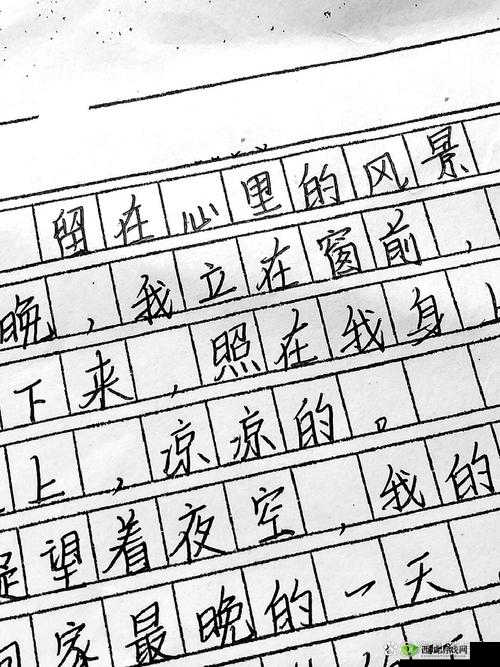 留在心里的风景
晚，我立在窗前，
下来，照在我身上
上，凉凉的。
望着夜空，我的
家最晚的一天